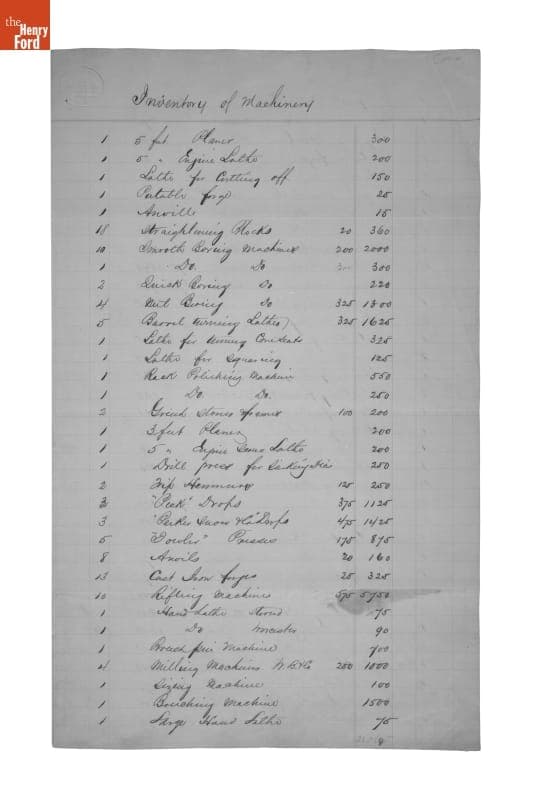 the
Henry
Ford
Inventory of Machinery
1 5 feet Planer 300
1 5 " Engine Lathe 200
1 Lathe for Cutting off 150
1 Portable forge 25
1 Anville 15
18 Straightening Blocks 20 360
10 Smooth Boring Machines 200 2000
1 Do. Do 300 300
2 Quick Boring Do 220
4 Nut Boring Do 325 1300
5 Barrel turning Lathes 325 1625
1 Lathe for turning 325
1 Lathe for Squaring 125
1 Rack Polishing Machine 550
1 Do. Do. 250
2 Grind Stones & frames 100 200
1 3 feet Planer 200
1 5 " Engine Screw Lathe 200
1 Drill press for 250
2 Trip Hammers 125 250
3 "Peck" Drops 375 1125
3 "Parker Snow & Co" Drops 475 1425
5 "Fowler" Presses 175 875
8 Anvils 20 160
13 Cast Iron forges 25 325
10 Rifling Machines 575 5750
1 Hand Lathe 75
1 Do Worcester 90
1 Broach pin Machine 700
4 Milling Machines 250 1000
1 Sizing Machine 100
1 Broaching Machine 1500
1 Large Hand Lathe 75